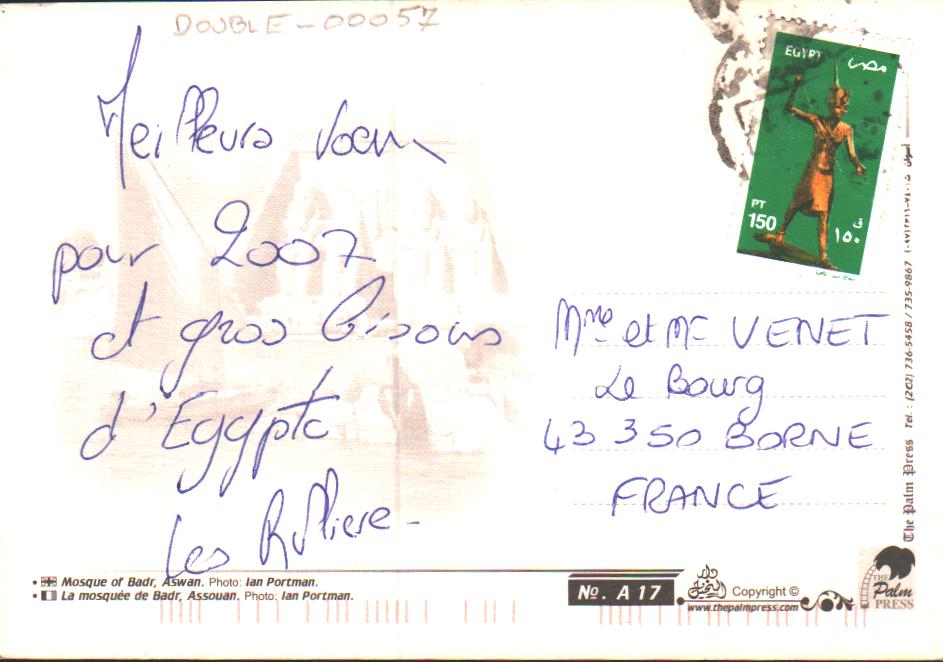 DOUBLE-00057
Meilleurs voeux
pour 2007
et gros bisous
d'Egypte
Les Rulliere
EGYPT مصر
PT
150
ق
١٥٠
Mme et Mr VENET
Le Bourg
43350 BORNE
FRANCE
The Palm Press Tel.: (202) 736-5458 / 735-9867
Mosque of Badr, Aswan. Photo: Ian Portman.
La mosquée de Badr, Assouan. Photo: Ian Portman.
No. A 17
دار النخيل
Copyright ©
www.thepalmpress.com
THE Palm PRESS